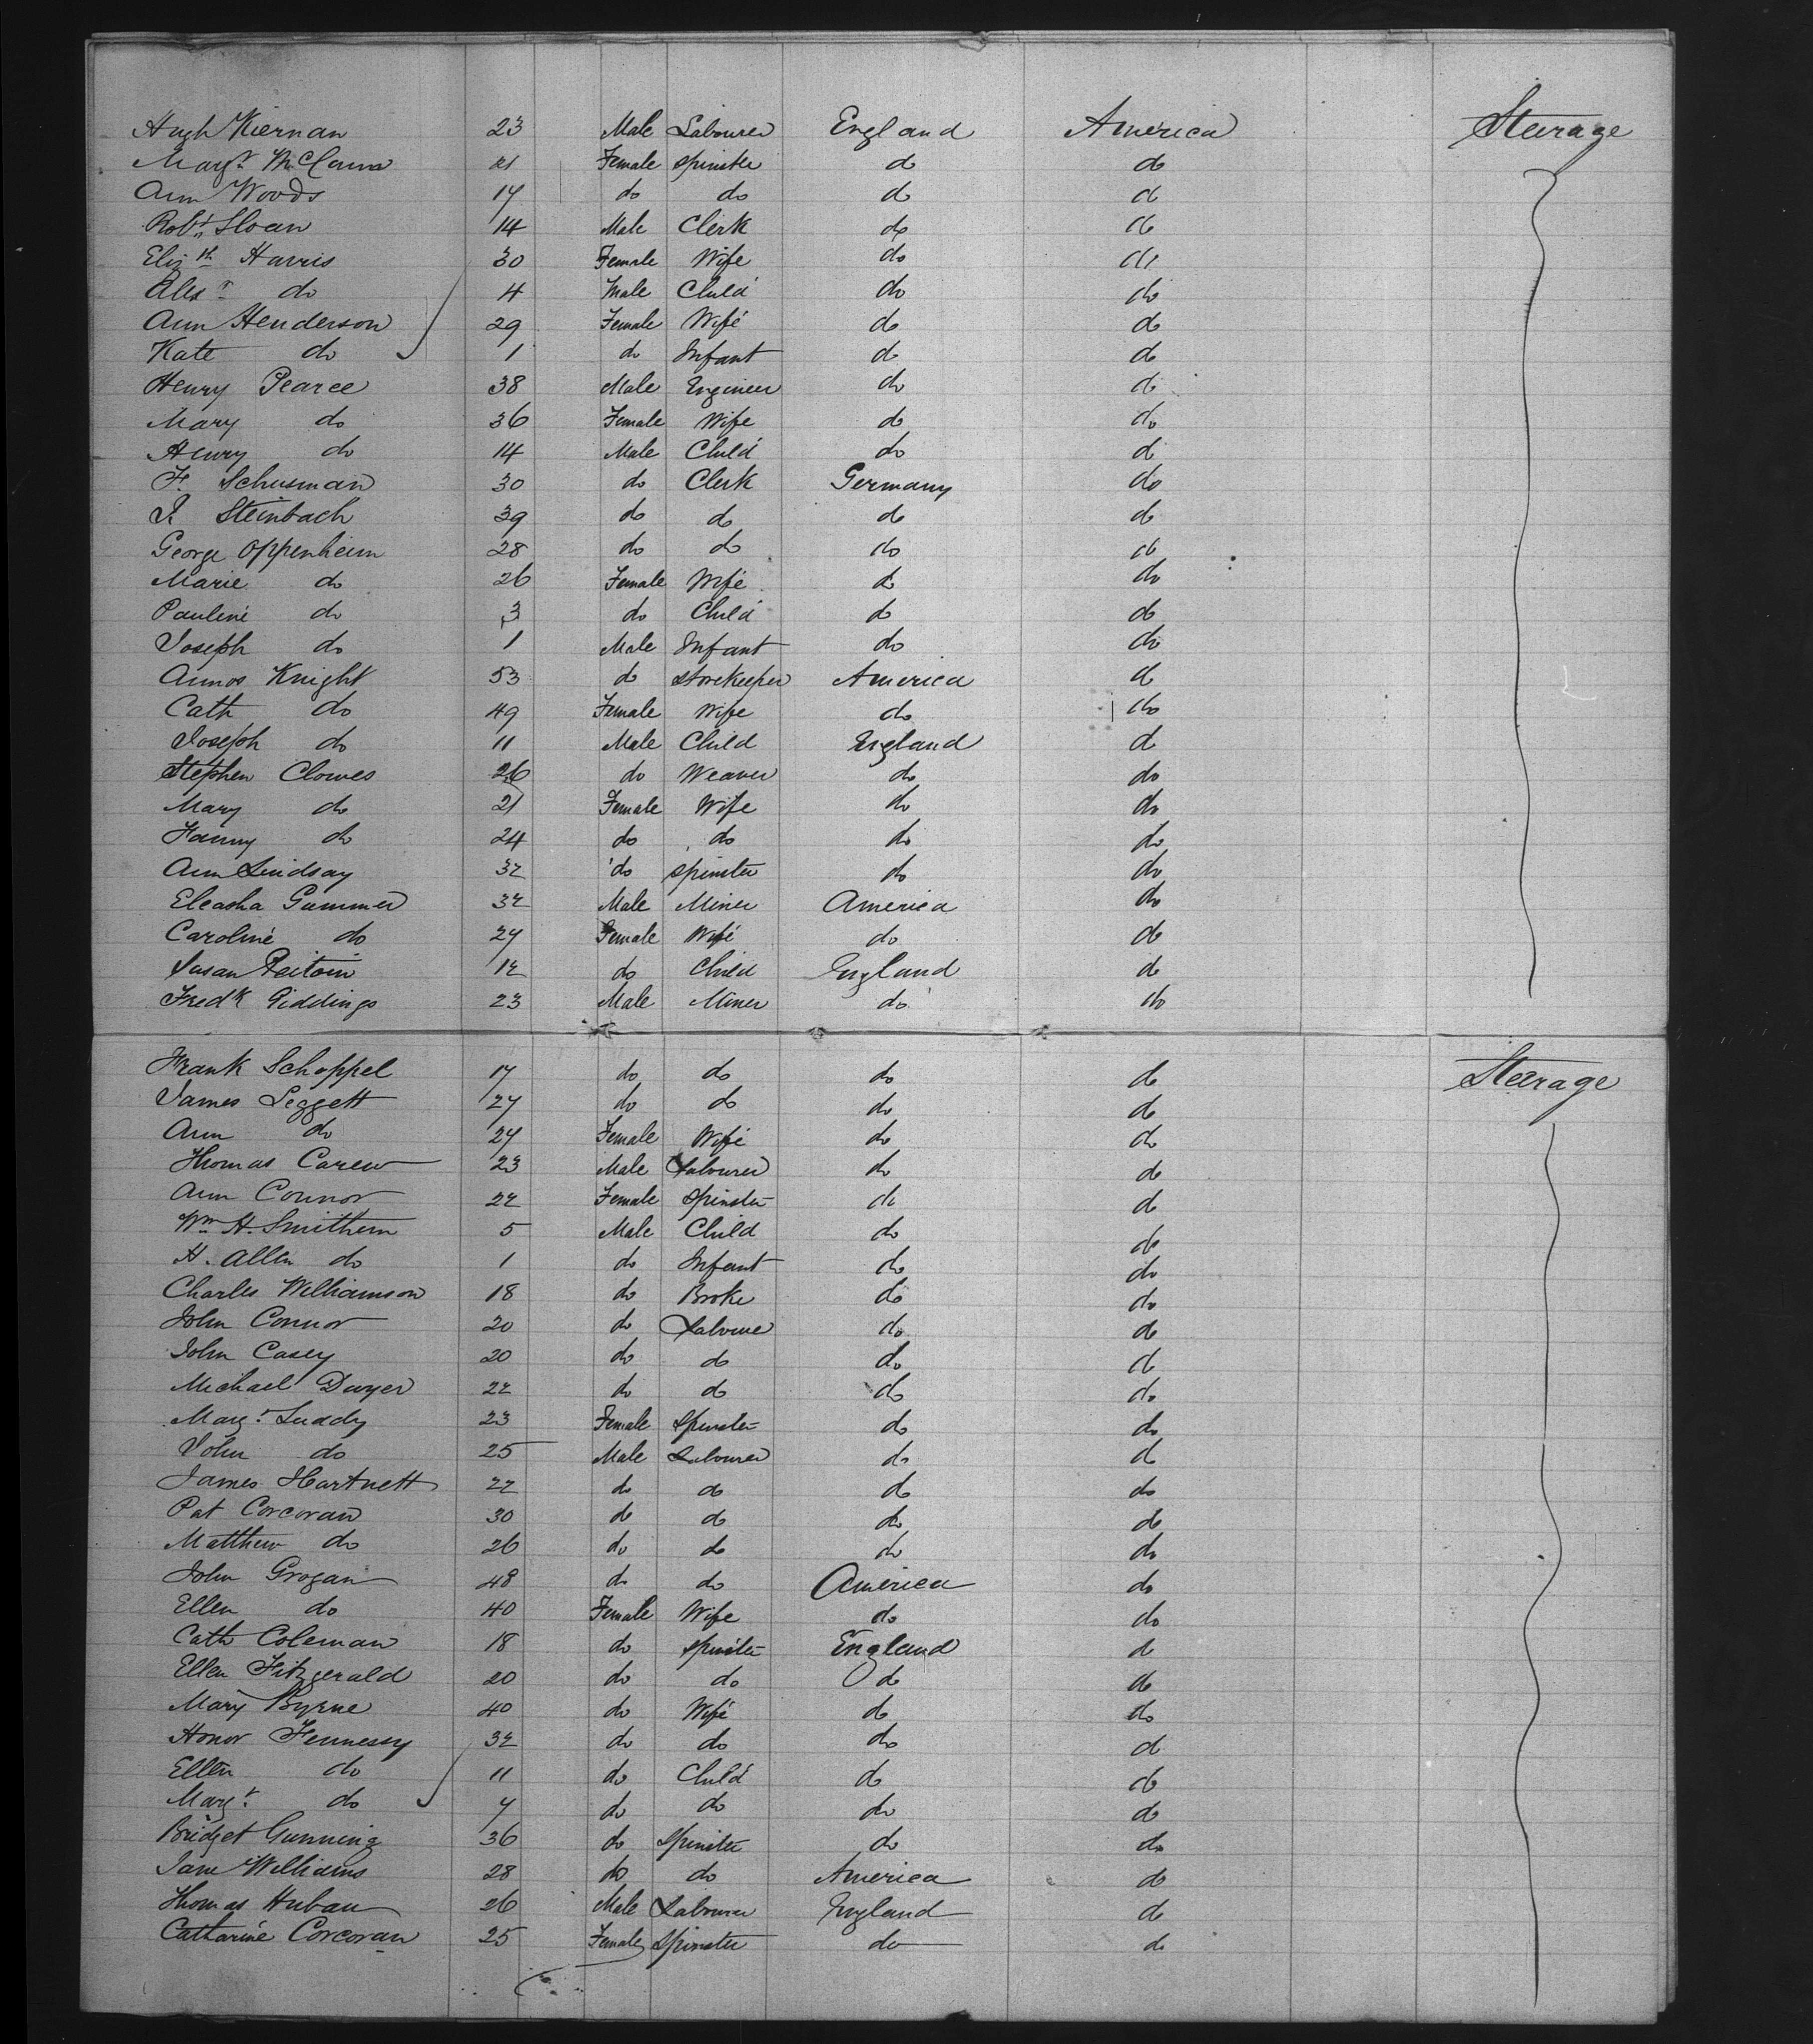 Hugh Kiernan 23 Male Labourer England America Steerage
Margt. 21 Female Spinster do do
Ann Woods 17 do do do do
Robt. Sloan 14 Male Clerk do do
Elizth Harris 30 Female Wife do do
Alexr do 4 Male Child do do
Ann Henderson 29 Female Wife do do
Kate do 1 do Infant do do
Henry Pearce 38 Male Engineer do do
Mary do 36 Female Wife do do
Henry do 14 Male Child do do
F. Schusman 30 do Clerk Germany do
Steinbach 39 do do do do
George Oppenheim 28 do do do do
Marie do 26 Female Wife do do
Pauline do 3 do Child do do
Joseph do 1 Male Infant do do
Amos Knight 53 do Storekeeper America do
Cath do 49 Female Wife do do
Joseph do 11 Male Child England do
Stephen Clowes 26 do Weaver do do
Mary do 21 Female Wife do do
Fanny do 24 do do do do
Ann Lindsay 32 do Spinster do do
Eleasha Gummer 32 Male Miner America do
Caroline do 27 Female Wife do do
Susan 12 do Child England do
Fredk Giddings 23 Male Miner do do
Frank Schoppel 17 do do do do Steerage
James Leggett 27 do do do do
Ann do 27 Female Wife do do
Thomas Carew 23 Male Labourer do do
Ann Connor 22 Female Spinster do do
Wm H. Smithem 5 Male Child do do
H. Allen do 1 do Infant do do
Charles Williamson 18 do Broke do do
John Connor 20 do Labourer do do
John Casey 20 do do do do
Michael Dwyer 22 do do do do
Margt. Luddy 23 Female Spinster do do
John do 25 Male Labourer do do
James Hartnett 22 do do do do
Pat Corcoran 30 do do do do
Matthew do 26 do do do do
John Grogan 48 do do America do
Ellen do 40 Female Wife do do
Cath Coleman 18 do Spinster England do
Ellen Fitzgerald 20 do do do do
Mary Byrne 40 do Wife do do
Honor Fennessy 32 do do do do
Ellen do 11 do Child do do
Margt. do 7 do do do do
Bridget Gunning 36 do Spinster do do
Jane Williams 28 do do America do
Thomas Huban 26 Male Labourer England do
Catharine Corcoran 25 Female Spinster do do